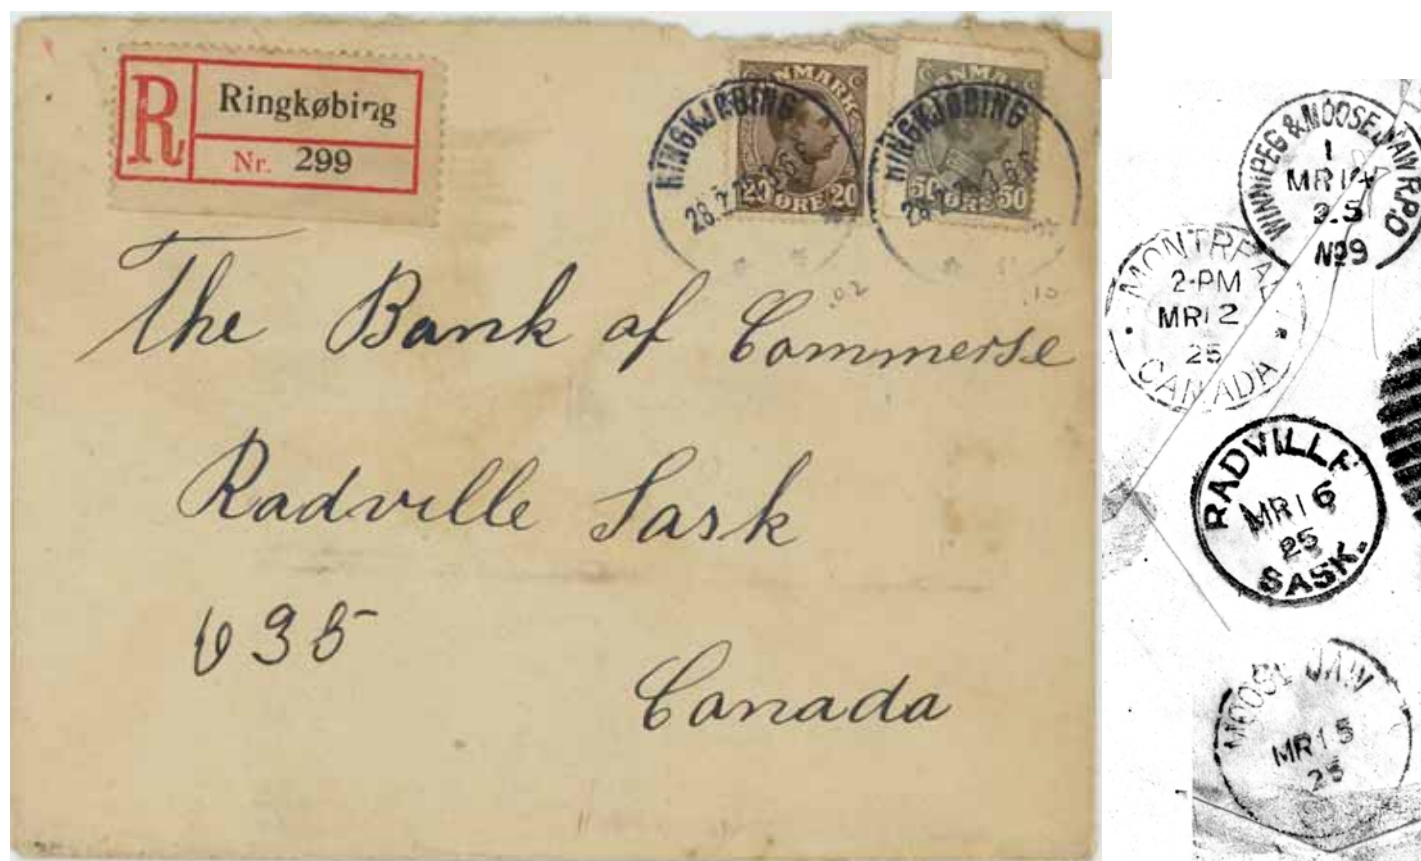 R Ringkøbing
Nr. 299
DANMARK
20 ØRE 20
DANMARK
50 ØRE 50
RINGKJØBING
28.2.
RINGKJØBING
28.2.
.02
.10
The Bank of Commerse
Radville Sask
Canada
WINNIPEG & MOOSE JAW R.P.O
1
MR 14
25
No9
MONTREAL
2-PM
MR 12
25
CANADA
RADVILLE
MR 16
25
SASK.
MOOSE JAW
MR 15
25